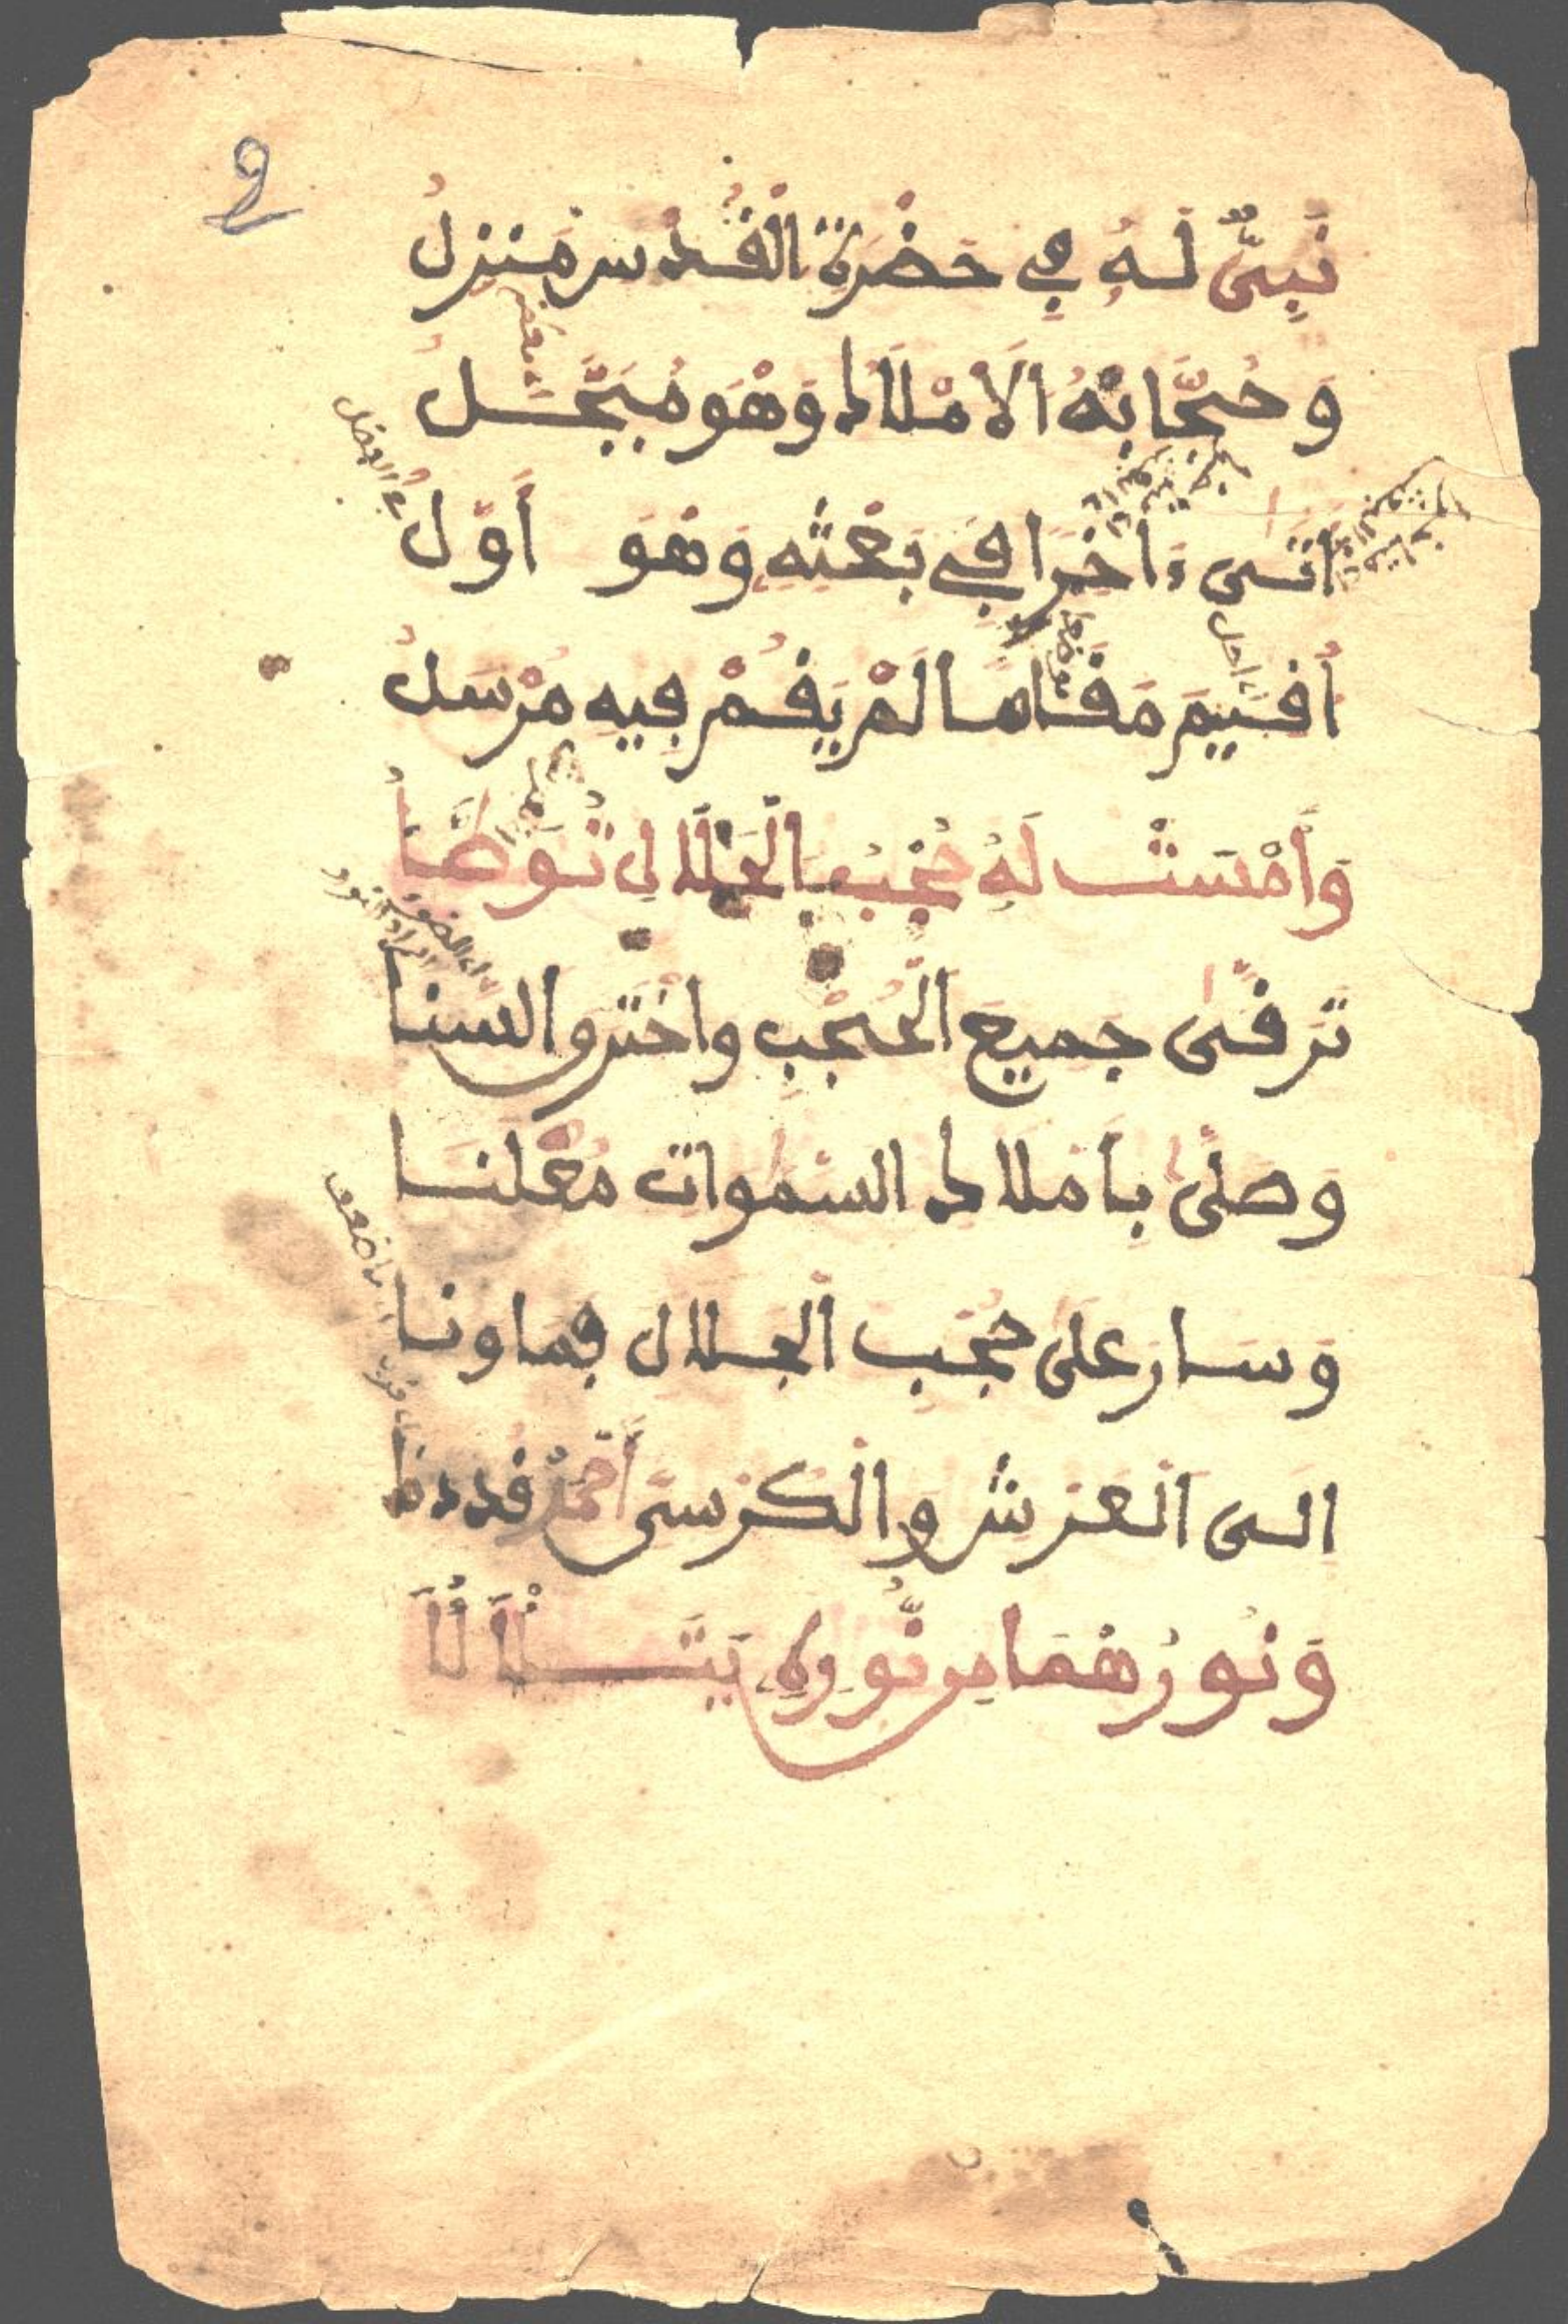 نَبِيٌّ لَهُ فِي حَضْرَةِ الْقُدْسِ مَنْزِلُ
وَحُجَّابُهُ الَامْلَاكُ وَهْوَ مُبَجَّلُ
أتى ءاخرًا في بَعْثِهِ وَهْوَ أَوَّلُ
أُقِيمَ مَقَامًا لَمْ يَقُمْ فِيهِ مُرْسَلُ
وَأَمْسَتْ لَهُ حُجْبُ الْجَلَالِ تُوَطَّأُ
تَرَقَّى جميعَ الْحُجْبِ واخترق السَّنا
وصلَّى بِأَملاك السَّموات مُعْلنَا
وَسَارَ عَلى حُجْبِ الْجلال فما ونا
الى الْعَرْشِ والْكُرْسِيِّ أَحْمَدُ قد دنا
وَنُورُهُمَا مِن نُّورِهِ يَتَلَأْلَأُ
في الفضل